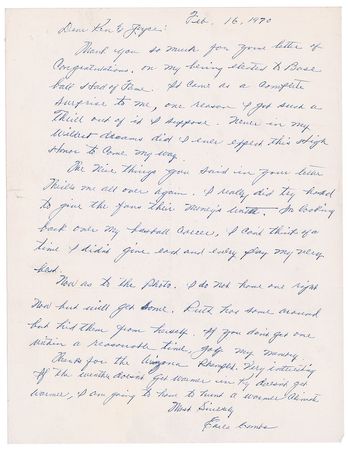 Feb. 16, 1970
Dear Ken & Joyce:
Thank you so much for your letter of
Congratulations, on my being elected to Base
ball Hall of Fame. It came as a complete
surprise to me, one reason I got such a
thrill out of it I suppose. Never in my
wildest dreams did I ever expect this high
honor to come my way.
The nice things you said in your letter
thrills me all over again. I really did try hard
to give the fans their money's worth. In looking
back over my baseball career, I can't think of a
time I didn't give each and every play my very
best.
Now as to the photo. I do not have one right
now but will get some. Ruth has some around
but hid them from herself. If you don't get one
within a reasonable time, jog my memory
Thanks for the Arizona. Very interesting
If the weather doesn't get warmer in Ky doesn't get
warmer, I am going to have to hunt a warmer climate
Most Sincerely
Earle Combs